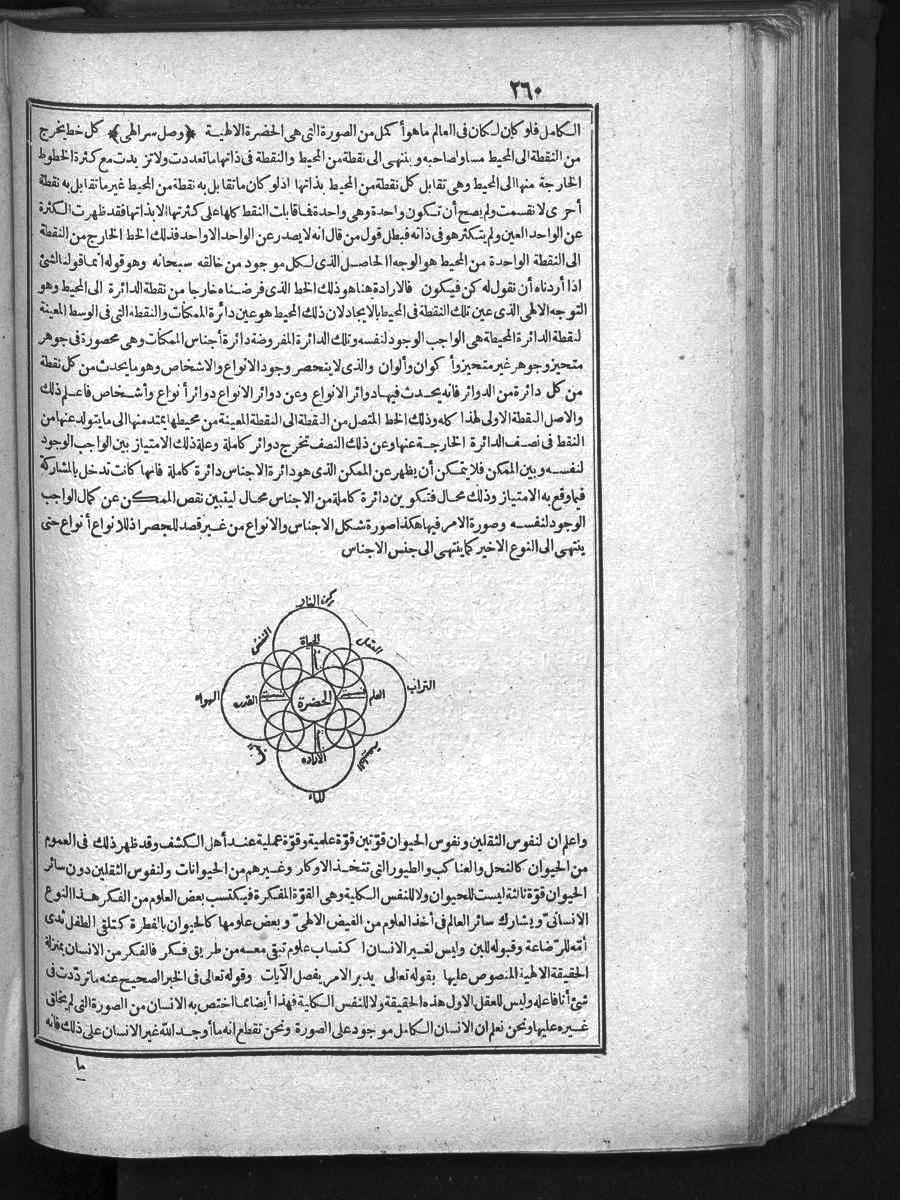 ٢٦٠
الكامل فلو كان لكان فى العالم ما هو أكمل من الصورة التى هى الحضرة الالهية ﴿وصل سر الهى﴾ كل خط يخرج
من النقطة الى المحيط مساو لصاحبه وينتهى الى نقطة من المحيط والنقطة فى ذاتها ما تعددت ولا تزيدت مع كثرة الخطوط
الخارجة منها الى المحيط وهى تقابل كل نقطة من المحيط بذاتها اذ لو كان ما تقابل به نقطة من المحيط غير ما تقابل به نقطة
أخرى لانقسمت ولم يصح أن تكون واحدة وهى واحدة فما قابلت النقط كلها على كثرتها الا بذاتها فقد ظهرت الكثرة
عن الواحد العين ولم يتكثر هو فى ذاته فبطل قول من قال انه لا يصدر عن الواحد الا واحد فذلك الخط الخارج من النقطة
الى النقطة الواحدة من المحيط هو الوجه الحاصل الذى لكل موجود من خالقه سبحانه وهو قوله انما قولنا لشئ
اذا أردناه أن نقول له كن فيكون فالارادة هنا هو ذلك الخط الذى فرضناه خارجا من نقطة الدائرة الى المحيط وهو
التوجه الالهى الذى عين تلك النقطة فى المحيط بالايجاد لان ذلك المحيط هو عين دائرة الممكنات والنقطة التى فى الوسط المعينة
لنقطة الدائرة المحيطة هى الواجب الوجود لنفسه وتلك الدائرة المفروضة دائرة أجناس الممكنات وهى محصورة فى جوهر
متحيز وجوهر غير متحيز وأكوان وألوان والذى لا ينحصر وجود الانواع والاشخاص وهو ما يحدث من كل نقطة
من كل دائرة من الدوائر فانه يحدث فيها دوائر الانواع وعن دوائر الانواع دوائر أنواع وأشخاص فاعلم ذلك
والاصل النقطة الاولى لهذا كله وذلك الخط المتصل من النقطة الى النقطة المعينة من محيطها يمتد منها الى ما يتولد عنها من
النقط فى نصف الدائرة الخارجة عنها وعن ذلك النصف تخرج دوائر كاملة وعلة ذلك الامتياز بين الواجب الوجود
لنفسه وبين الممكن فلا يتمكن أن يظهر عن الممكن الذى هو دائرة الاجناس دائرة كاملة فانها كانت تدخل بالمشاركة
فيما وقع به الامتياز وذلك محال فتكوين دائرة كاملة من الاجناس محال ليتبين نقص الممكن عن كمال الواجب
الوجود لنفسه وصورة الامر فيها هكذا صورة شكل الاجناس والانواع من غير قصد للحصر اذ للانواع أنواع حتى
ينتهى الى النوع الاخير كما ينتهى الى جنس الاجناس
ركن النار
النفس
العقل
الحياة
الهواء
القدره
الحضرة
العلم
التراب
الاراده
الطبيعة
الماء
واعلم ان لنفوس الثقلين ونفوس الحيوان قوّتين قوّة علمية وقوّة عملية عند أهل الكشف وقد ظهر ذلك فى العموم
من الحيوان كالنحل والعناكب والطيور التى تتخذ الاوكار وغيرهم من الحيوانات ولنفوس الثقلين دون سائر
الحيوان قوّة ثالثة ليست للحيوان ولا للنفس الكلية وهى القوّة المفكرة فيكتسب بعض العلوم من الفكر هذا النوع
الانسانىّ ويشارك سائر العالم فى أخذ العلوم من الفيض الالهىّ وبعض علومها كالحيوان بالفطرة كتلقى الطفل ثدى
أمّه للرّضاعة وقبوله للبن وليس لغير الانسان اكتساب علوم تبقى معه من طريق فكر فالفكر من الانسان بمنزلة
الحقيقة الالهية المنصوص عليها بقوله تعالى يدبر الامر يفصل الآيات وقوله تعالى فى الخبر الصحيح عنه ما تردّدت فى
شئ أنا فاعله وليس للعقل الاول هذه الحقيقة ولا للنفس الكلية فهذا أيضا مما اختص به الانسان من الصورة التى لم يخلق
غيره عليها ونحن نعلم ان الانسان الكامل موجود على الصورة ونحن نقطع انه ما أوجد الله غير الانسان على ذلك فانه
ما